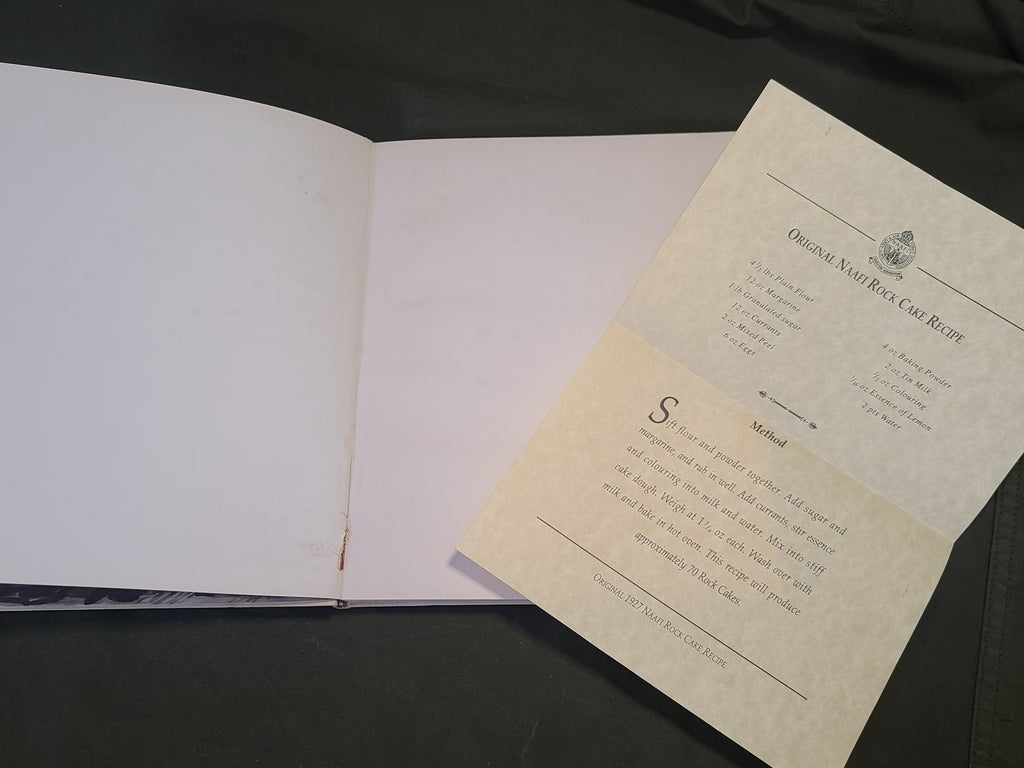 NAAFI
ORIGINAL NAAFI ROCK CAKE RECIPE
4½ lbs Plain Flour
12 oz Margarine
1 lb Granulated sugar
12 oz Currants
2 oz Mixed Peel
6 oz Eggs
4 oz Baking Powder
2 oz Tin Milk
½ oz Colouring
1/16 oz Essence of Lemon
2 pts Water
Method
Sift flour and powder together. Add sugar and
margarine, and rub in well. Add currants, stir essence
and colouring into milk and water. Mix into stiff
cake dough. Weigh at 1¾ oz each. Wash over with
milk and bake in hot oven. This recipe will produce
approximately 70 Rock Cakes.
ORIGINAL 1927 NAAFI ROCK CAKE RECIPE